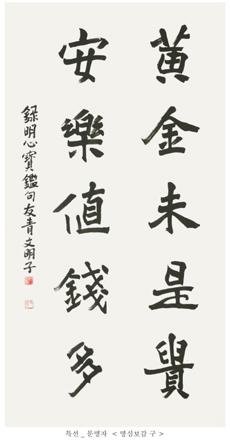 黃金未是貴
安樂値錢多
錄明心寶鑑句友靑文明子
특선 _ 문명자 < 명심보감 구 >